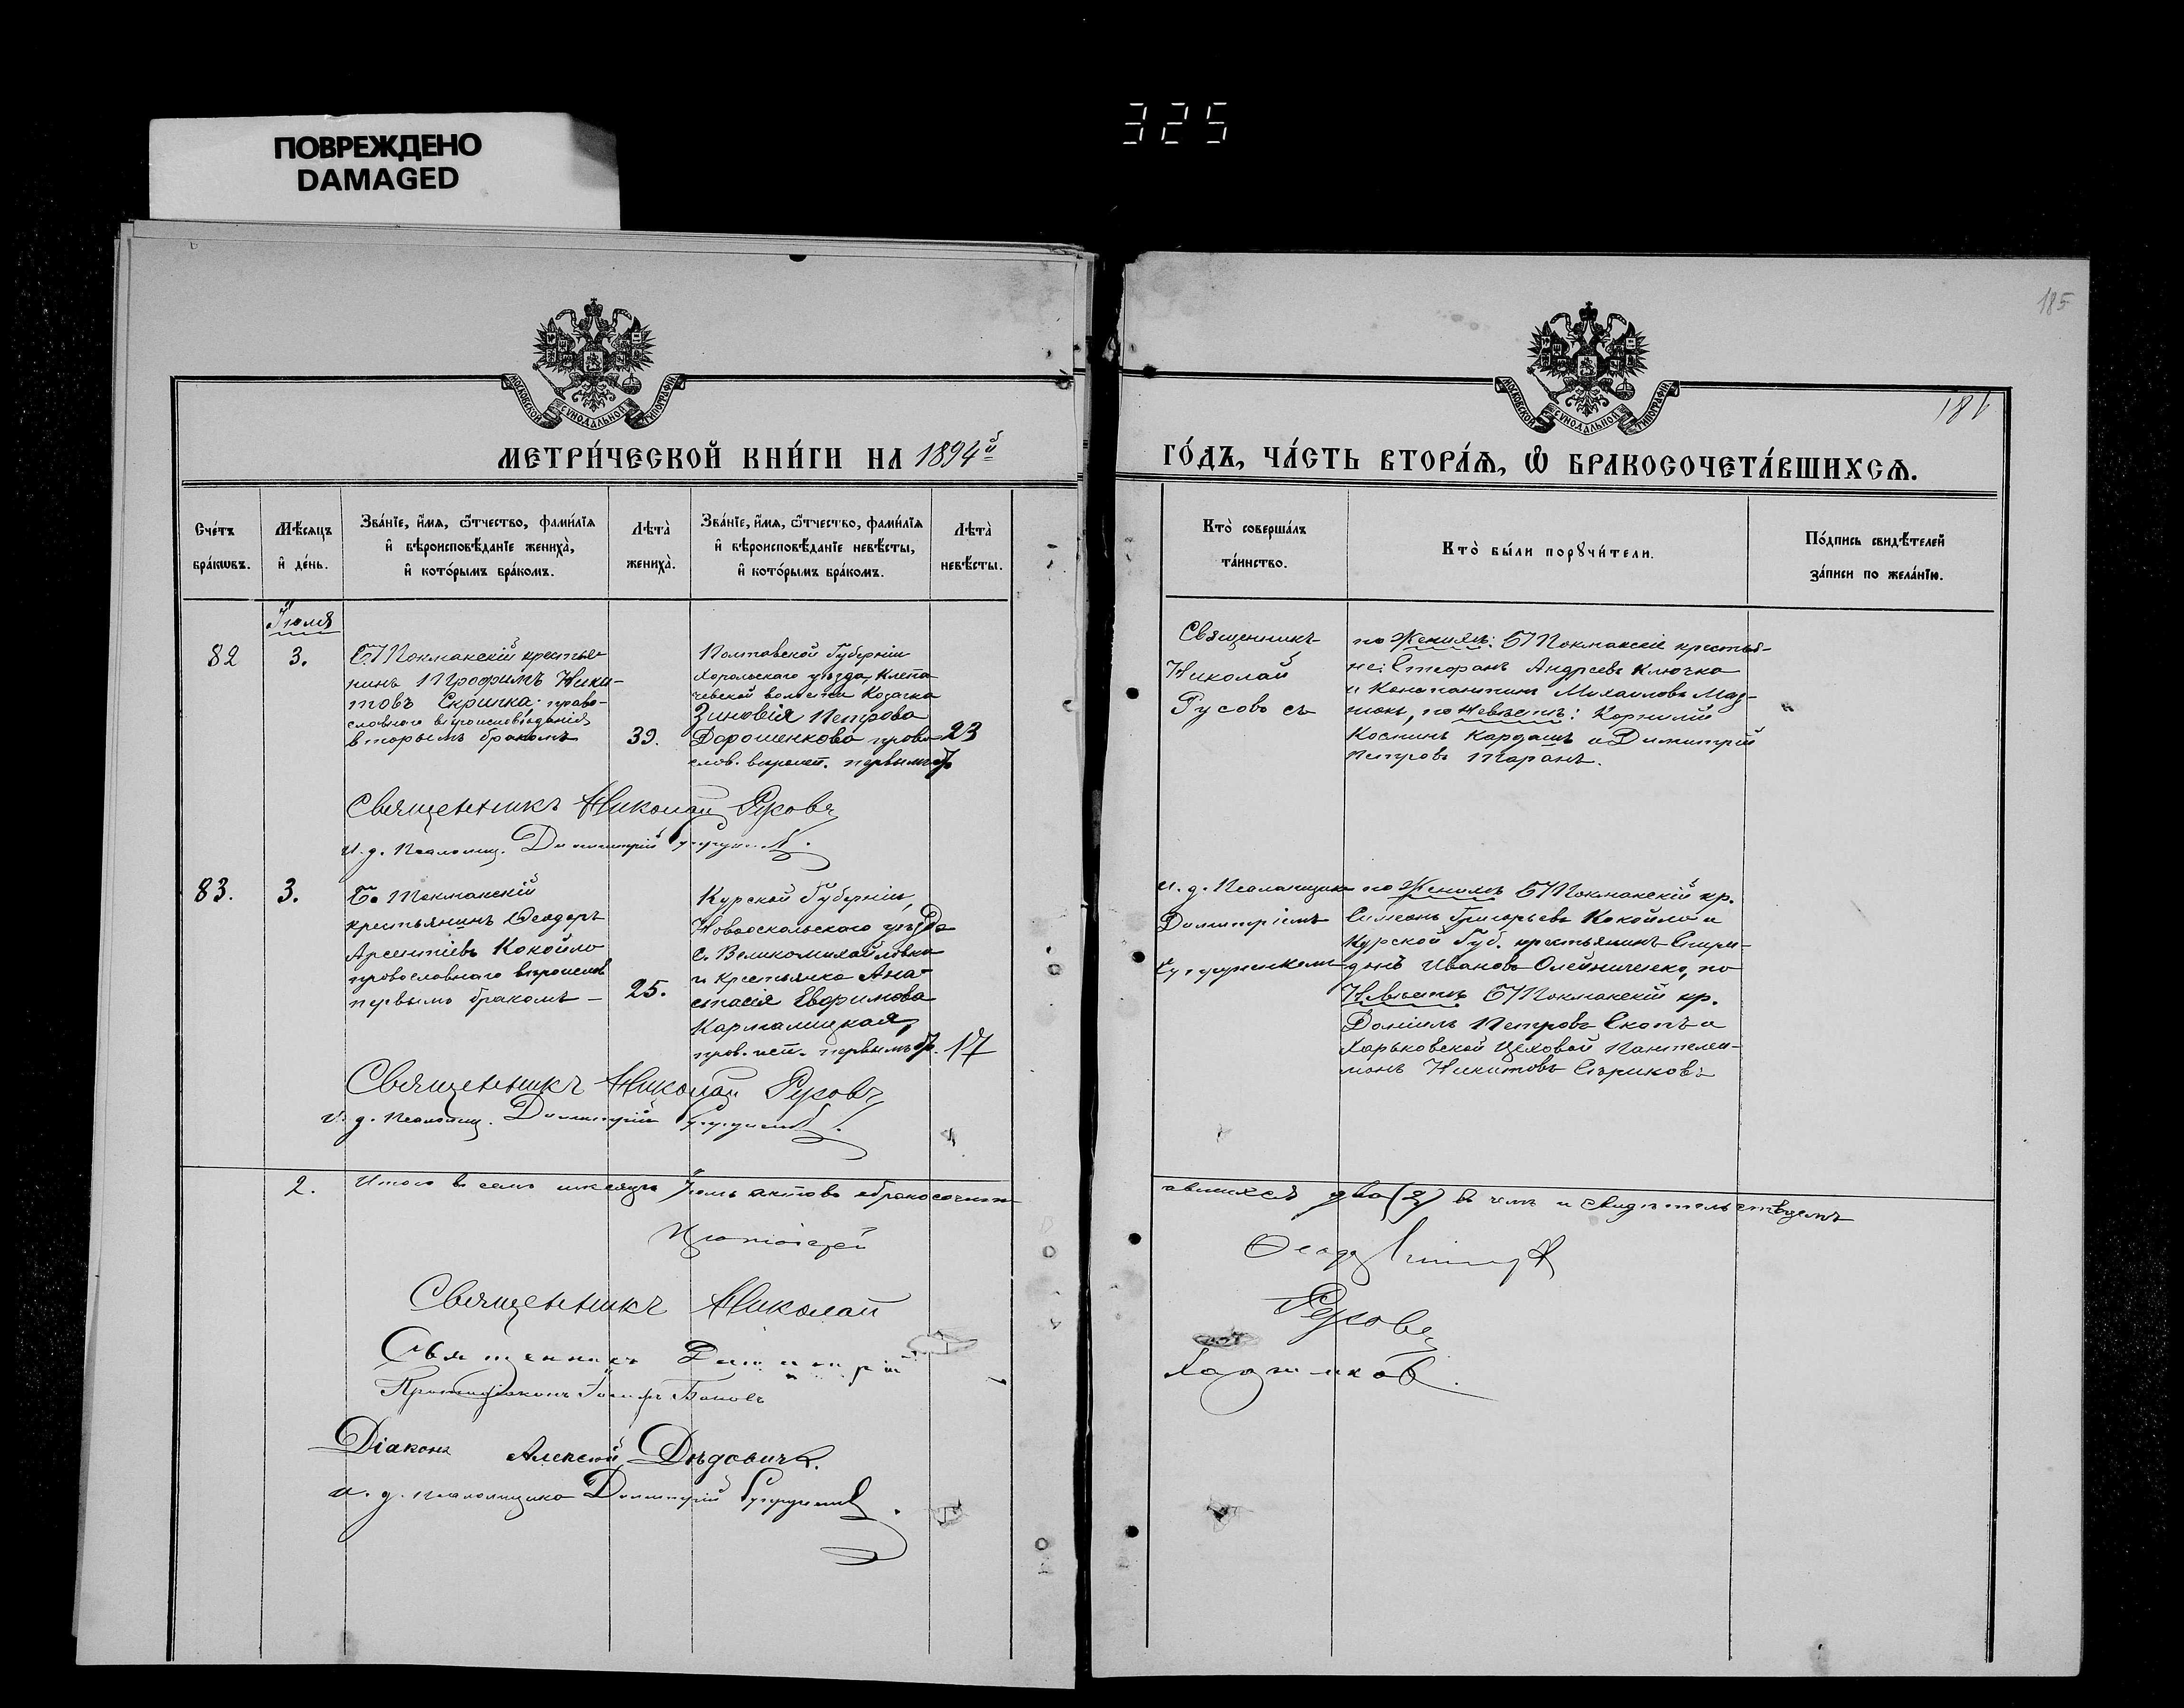 325
ПОВРЕЖДЕНО
DAMAGED
185
181
МОСКОВСКОЙ СѴНОДАЛЬНОЙ ТИПОГРАФІИ
МОСКОВСКОЙ СѴНОДАЛЬНОЙ ТИПОГРАФІИ
МЕТРИ́ЧЕСКОЙ КНИ́ГИ НА 1894й
ГО́ДЪ, ЧА́СТЬ ВТОРА́Ѧ, Ѽ БРАКОСОЧЕТА́ВШИХСѦ.
Сче́тъ
бра́кѡвъ.
Мѣ́сѧцъ
и҆ де́нь.
Зва́нїе, и҆́мѧ, ѻ҆́тчество, фами́лїѧ
и҆ вѣроисповѣ́данїе жениха̀,
и҆ кото́рымъ бра́комъ.
Лѣта̀
жениха̀.
Зва́нїе, и҆́мѧ, ѻ҆́тчество, фами́лїѧ
и҆ вѣроисповѣ́данїе невѣ́сты,
и҆ кото́рымъ бра́комъ.
Лѣта̀
невѣ́сты.
Кто̀ соверша́лъ
та́инство.
Кто̀ бы́ли порꙋчи́тели.
По́дпись свидѣ́телей
за́писи по жела́нїю.
Іюля
82
3.
Б Токмакскій крестья-
нинъ Трофимъ Ники-
товъ Скричка право-
славнаго вѣроисповѣданія
вторымъ бракомъ
39.
Полтавской Губерніи
Хорольскаго уѣзда, Клепа-
чевской волости Козачка
Зиновія Петрова
Дорошенкова право
слов. вѣроисп. первымъ бр.
23
Священникъ
Николай
Русовъ съ
по Женихѣ: Б Токмакскіе крестья-
не: Стефанъ Андреевъ Ключка
и Константинъ Михаиловъ
по Невѣстѣ: Корнилій
Косминъ Кардашъ и Димитрій
Петровъ Таранъ.
Священникъ Николай Русовъ
и. д. Псаломщ. Димитрій
83.
3.
Б. Токмакскій
крестьянинъ Ѳеодоръ
Арсентіевъ Кокойло
православнаго вѣроиспов
первымъ бракомъ
25.
Курской Губерніи,
Новооскольскаго уѣзда
С. Великомихайловка
и крестьянка Ана-
стасія Евфимова
Кармалицкая,
прав. исп. первымъ бр.
17
и. д. Псаломщика
Димитріемъ
по Женихѣ Б Токмакскій кр.
Симеонъ Григорьевъ Кокойло и
Курской Губ. крестьянинъ Спири-
донъ Ивановъ Олейниченко, по
Невѣстѣ Б Токмакскій кр.
Даніилъ Петровъ Скопъ и
Харьковской Цеховой Пантелеи-
монъ Никитовъ
Священникъ Николай Русовъ
и. д. псаломщ. Димитрій
2.
Итого въ семъ мѣсяцѣ Іюль актовъ о бракосочет
авшихся два (2) въ чемъ и свидѣтельствуемъ
Протоіерей
Священникъ Николай
Русовъ
Священникъ Димитрій
Протодіаконъ Іосифъ
Діаконъ Алексій Дѣдовичъ.
и. д. псаломщика Димитрій